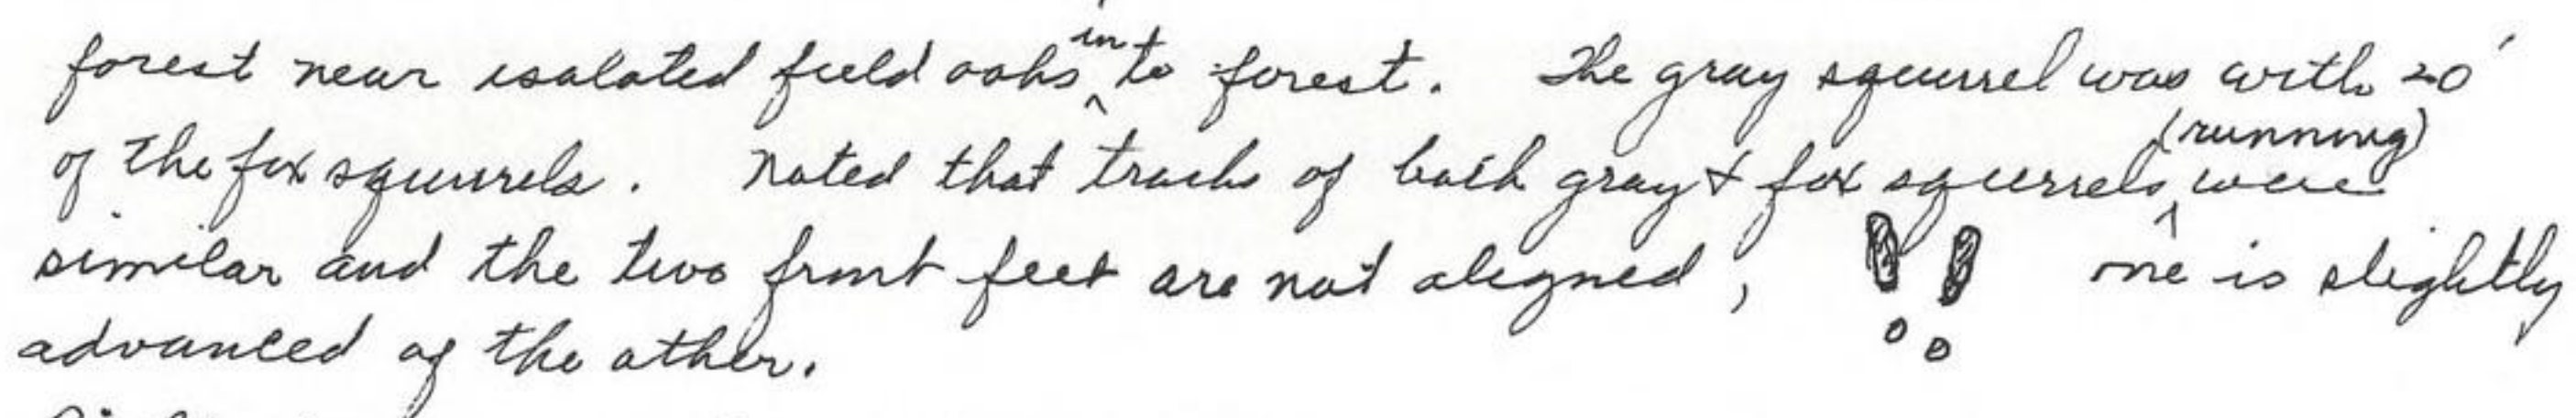 forest near isolated field oaks in to forest. The gray squirrel was with 20'
of the fox squirrels. Noted that tracks of both gray & fox squirrels (running) were
similar and the two front feet are not aligned, one is slightly
advanced of the other.